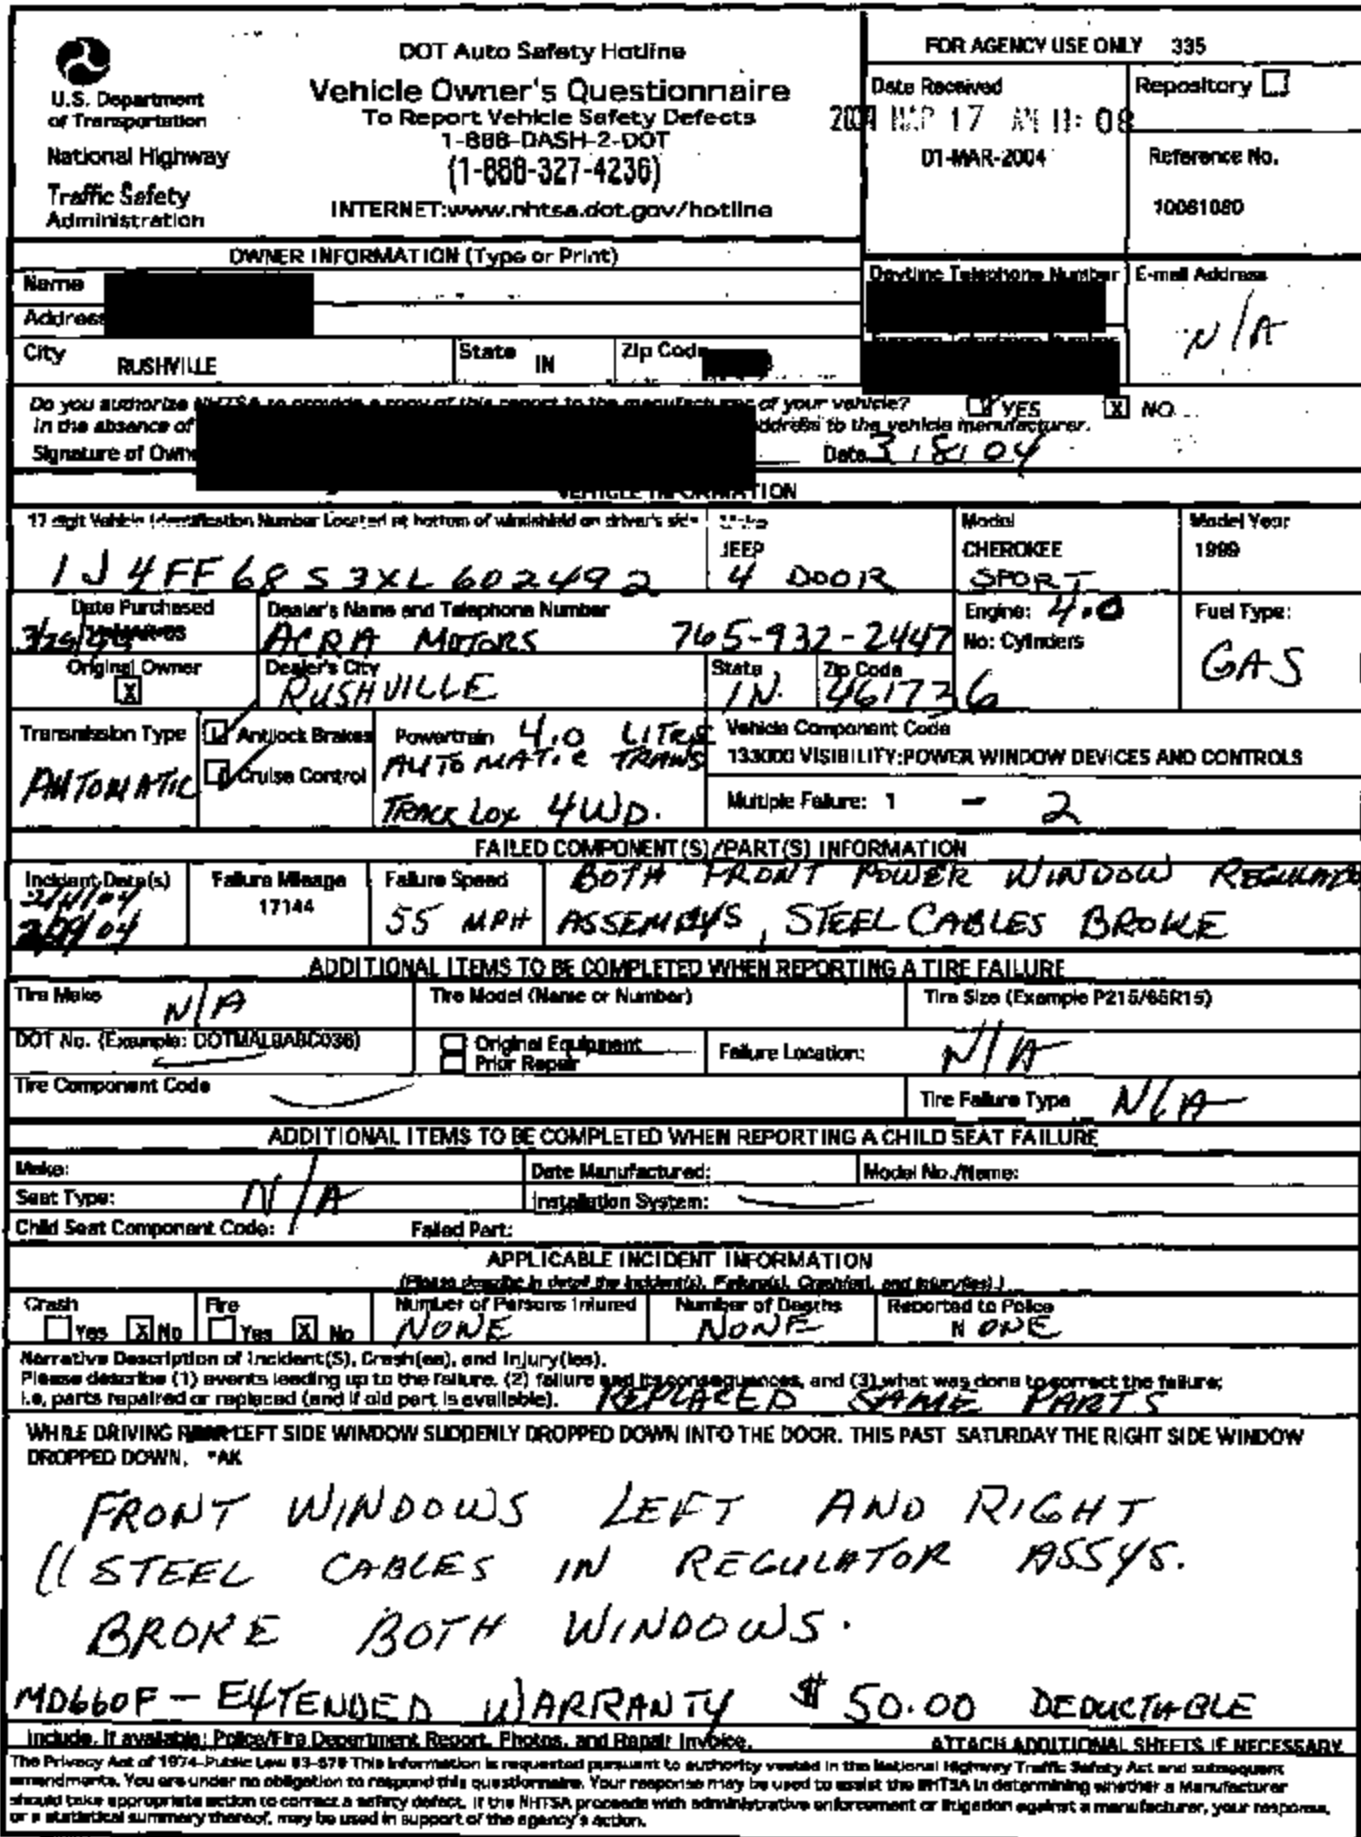 DOT Auto Safety Hotline
FOR AGENCY USE ONLY 335
U.S. Department
of Transportation
National Highway
Traffic Safety
Administration
Vehicle Owner's Questionnaire
To Report Vehicle Safety Defects
1-888-DASH-2-DOT
(1-888-327-4236)
INTERNET:www.nhtsa.dot.gov/hotline
Date Received
17 AM 11: 08
01-MAR-2004
Repository
Reference No.
10061080
OWNER INFORMATION (Type or Print)
Name
Address
City RUSHVILLE State IN Zip Code
Daytime Telephone Number
E-mail Address
N/A
Do you authorize NHTSA to provide a copy of this report to the manufacturer of your vehicle? YES X NO
In the absence of address to the vehicle manufacturer.
Signature of Owne Date 3/8/04
VEHICLE INFORMATION
17 digit Vehicle Identification Number Located at bottom of windshield on driver's side
1J4FF68S3XL602492
Make
JEEP
4 DOOR
Model
CHEROKEE
SPORT
Model Year
1999
Date Purchased
Dealer's Name and Telephone Number
ACRA MOTORS 765-932-2447
Engine: 4.0
No: Cylinders
6
Fuel Type:
GAS
Original Owner
X
Dealer's City
RUSHVILLE
State
IN.
Zip Code
Transmission Type
AUTOMATIC
Antilock Brakes
Cruise Control
Powertrain 4.0 LITRE
AUTOMATIC TRANS
TRACK LOX 4WD.
Vehicle Component Code
133000 VISIBILITY:POWER WINDOW DEVICES AND CONTROLS
Multiple Failure: 1 - 2
FAILED COMPONENT(S)/PART(S) INFORMATION
Incident Date(s)
Failure Mileage
17144
Failure Speed
55 MPH
BOTH FRONT POWER WINDOW
ASSEMBYS, STEEL CABLES BROKE
ADDITIONAL ITEMS TO BE COMPLETED WHEN REPORTING A TIRE FAILURE
Tire Make N/A
Tire Model (Name or Number)
Tire Size (Example P215/65R15)
N/A
DOT No. (Example: DOTMAL9ABC036)
Original Equipment
Prior Repair
Failure Location:
Tire Component Code
Tire Failure Type N/A
ADDITIONAL ITEMS TO BE COMPLETED WHEN REPORTING A CHILD SEAT FAILURE
Make: Date Manufactured: Model No./Name:
Seat Type: N/A Installation System:
Child Seat Component Code: Failed Part:
APPLICABLE INCIDENT INFORMATION
(Please describe in detail the Incident(s), Failure(s), Crash(es), and Injury(ies).)
Crash
Yes X No
Fire
Yes X No
Number of Persons Injured
NONE
Number of Deaths
NONE
Reported to Police
NONE
Narrative Description of Incident(S), Crash(es), and Injury(ies).
Please describe (1) events leading up to the failure, (2) failure and its consequences, and (3) what was done to correct the failure;
i.e, parts repaired or replaced (and if old part is available). REPLACED SAME PARTS
WHILE DRIVING LEFT SIDE WINDOW SUDDENLY DROPPED DOWN INTO THE DOOR. THIS PAST SATURDAY THE RIGHT SIDE WINDOW
DROPPED DOWN. *AK
FRONT WINDOWS LEFT AND RIGHT
STEEL CABLES IN REGULATOR ASSYS.
BROKE BOTH WINDOWS.
MD660F - EXTENDED WARRANTY $50.00 DEDUCTABLE
Include, if available: Police/Fire Department Report, Photos, and Repair Invoice.
ATTACH ADDITIONAL SHEETS IF NECESSARY
The Privacy Act of 1974-Public Law 93-579 This information is requested pursuant to authority vested in the National Highway Traffic Safety Act and subsequent
amendments. You are under no obligation to respond this questionnaire. Your response may be used to assist the NHTSA in determining whether a Manufacturer
should take appropriate action to correct a safety defect. If the NHTSA proceeds with administrative enforcement or litigation against a manufacturer, your response,
or a statistical summary thereof, may be used in support of the agency's action.